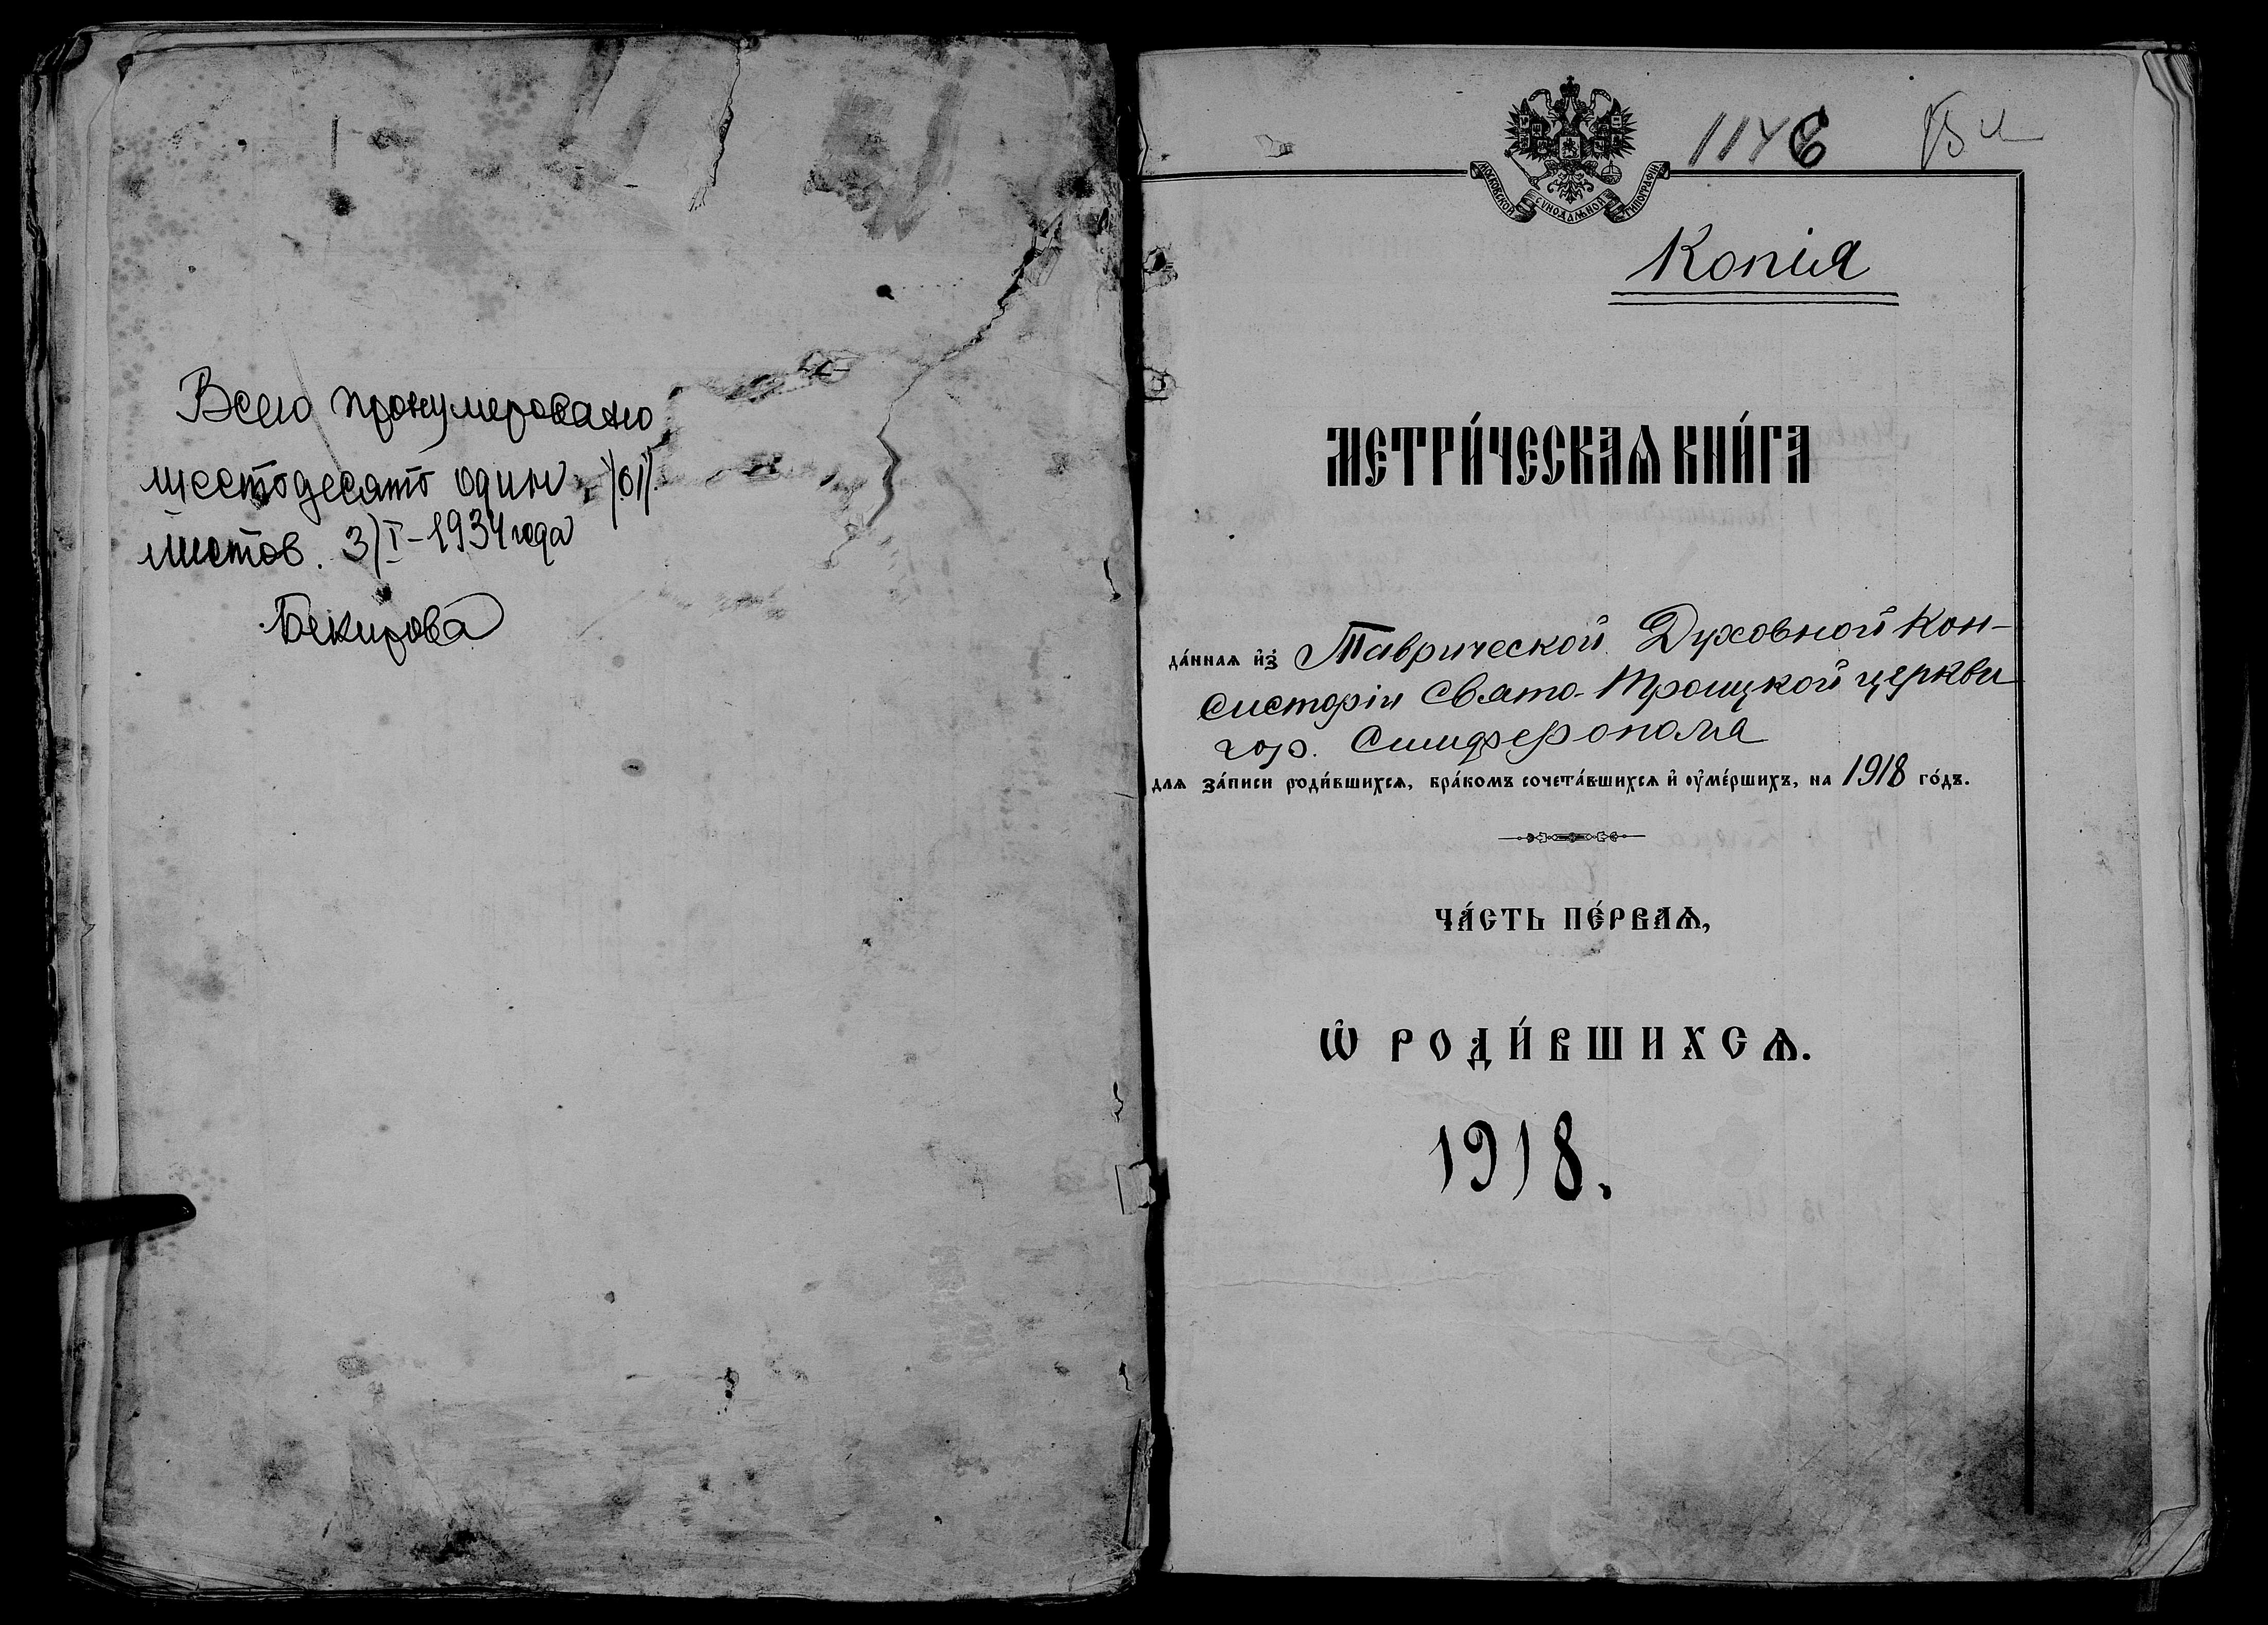 Всего пронумеровано
шестьдесят один /61/
листов. 3/I-1934 года
Бекирова
1146
МОСКОВСКОЙ СѴНОДАЛЬНОЙ ТИПОГРАФІИ
Копія
МЕТРИ́ЧЕСКАѦ КНИ́ГА
да́ннаѧ и҆з̾ Таврической Духовной Кон-
систоріи Свято-Троицкой церкви
гор. Симферополя
длѧ за́писи роди́вшихсѧ, бра́комъ сочета́вшихсѧ и҆ оу҆ме́ршихъ, на 1918 го́дъ.
ЧА́СТЬ ПЕ́РВАѦ,
Ѡ҆ РОДИ́ВШИХСѦ.
1918.